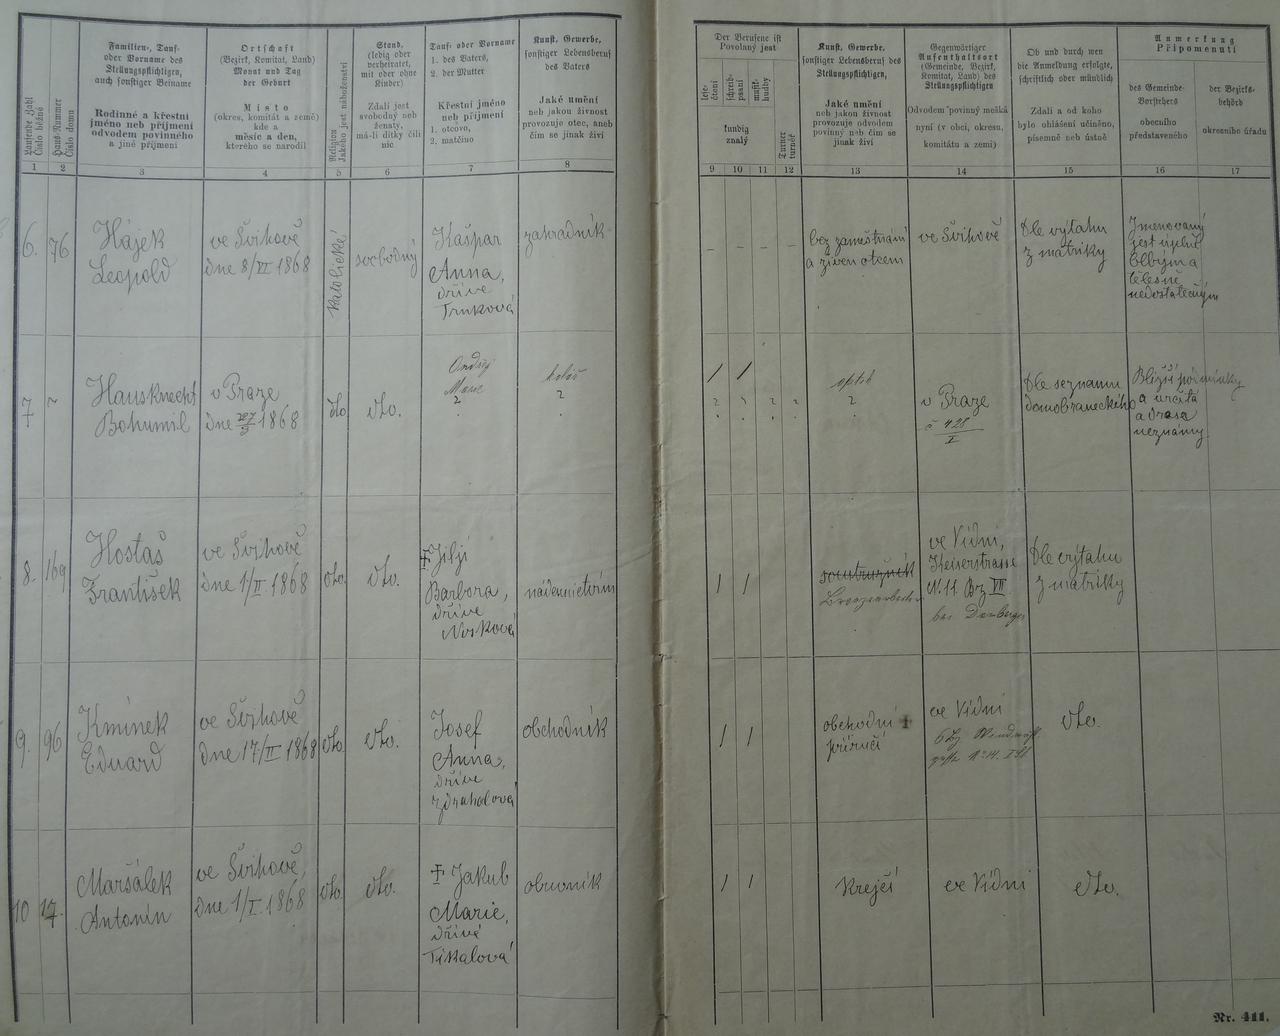 Laufende Zahl
Číslo běžné
Haus-Nummer
Číslo domu
Familien-, Tauf-
oder Vorname des
Stellungspflichtigen,
auch sonstiger Beiname
Rodinné a křestní
jméno neb příjmení
odvodem povinného
a jiné příjmení
Ortschaft
(Bezirk, Komitat, Land)
Monat und Tag
der Geburt
Místo
(okres, komitát a země)
kde a
měsíc a den,
kterého se narodil
Religion
Jakého jest náboženství
Stand,
(ledig oder
verheiratet,
mit oder ohne
Kinder)
Zdali jest
svobodný neb
ženatý,
má-li dítky čili
nic
Tauf- oder Vorname
1. des Vaters,
2. der Mutter
Křestní jméno
neb příjmení
1. otcovo,
2. matčino
Kunst, Gewerbe,
sonstiger Lebensberuf
des Vaters
Jaké umění
neb jakou živnost
provozuje otec, aneb
čím se jinak živí
Der Berufene ist
Povolaný jest
lese-
čtení
schreib-
psaní
musik-
hudby
kundig
znalý
Turner
turnéř
Kunst, Gewerbe,
sonstiger Lebensberuf des
Stellungspflichtigen,
Jaké umění
neb jakou živnost
provozuje odvodem
povinný neb čím se
jinak živí
Gegenwärtiger
Aufenthaltsort
(Gemeinde, Bezirk,
Komitat, Land) des
Stellungspflichtigen
Odvodem povinný mešká
nyní (v obci, okresu,
komitátu a zemi)
Ob und durch wen
die Anmeldung erfolgte,
schriftlich oder mündlich
Zdali a od koho
bylo ohlášení učiněno,
písemně neb ústně
Anmerkung
Připomenutí
des Gemeinde-
Vorstehers
obecního
představeného
der Bezirks-
behörd
okresního úřadu
1 2 3 4 5 6 7 8 9 10 11 12 13 14 15 16 17
6. 76
Hájek
Leopold
ve Švihově
dne 8/XI 1868
katolické
svobodný
Kašpar
Anna,
dříve
Trnková
zahradník
- - - -
bez zaměstnání
a živen otcem
ve Švihově
Dle výtahu
z matriky
Jmenovaný
jest úplně
blbým a
tělesně
nedostatečným
7 ?
Hausknecht
Bohumil
v Praze
dne 1868
dto.
dto.
Ondřej
Marie
?
kolář
?
/ /
? ? ? ?
optik
?
v Praze
č 428
I
Dle seznamu
domobraneckého
Bližší pomínky
a určitá
adresa
neznámy.
8. 169
Hostaš
František
ve Švihově
dne 1/II. 1868
dto.
dto.
‡ Jiljí
Barbora,
dříve
Nosková
nádenictvím
/ /
soustružník
ve Vídni,
Kaiserstrasse
N. 11. Bz VII
bei
Dle výtahu
z matriky
9. 96
Kmínek
Eduard
ve Švihově
dne 17/II 1868
dto.
dto.
Josef
Anna,
dříve
Zdrahalová
obchodník
/ /
obchodní
příručí
ve Vídni
dto.
10 17.
Maršálek
Antonín
ve Švihově,
dne 1/I. 1868
dto.
dto.
‡ Jakub
Marie,
dříve
Tikalová
obuvník
/ /
Krejčí
ve Vídni
dto.
Nr. 411.